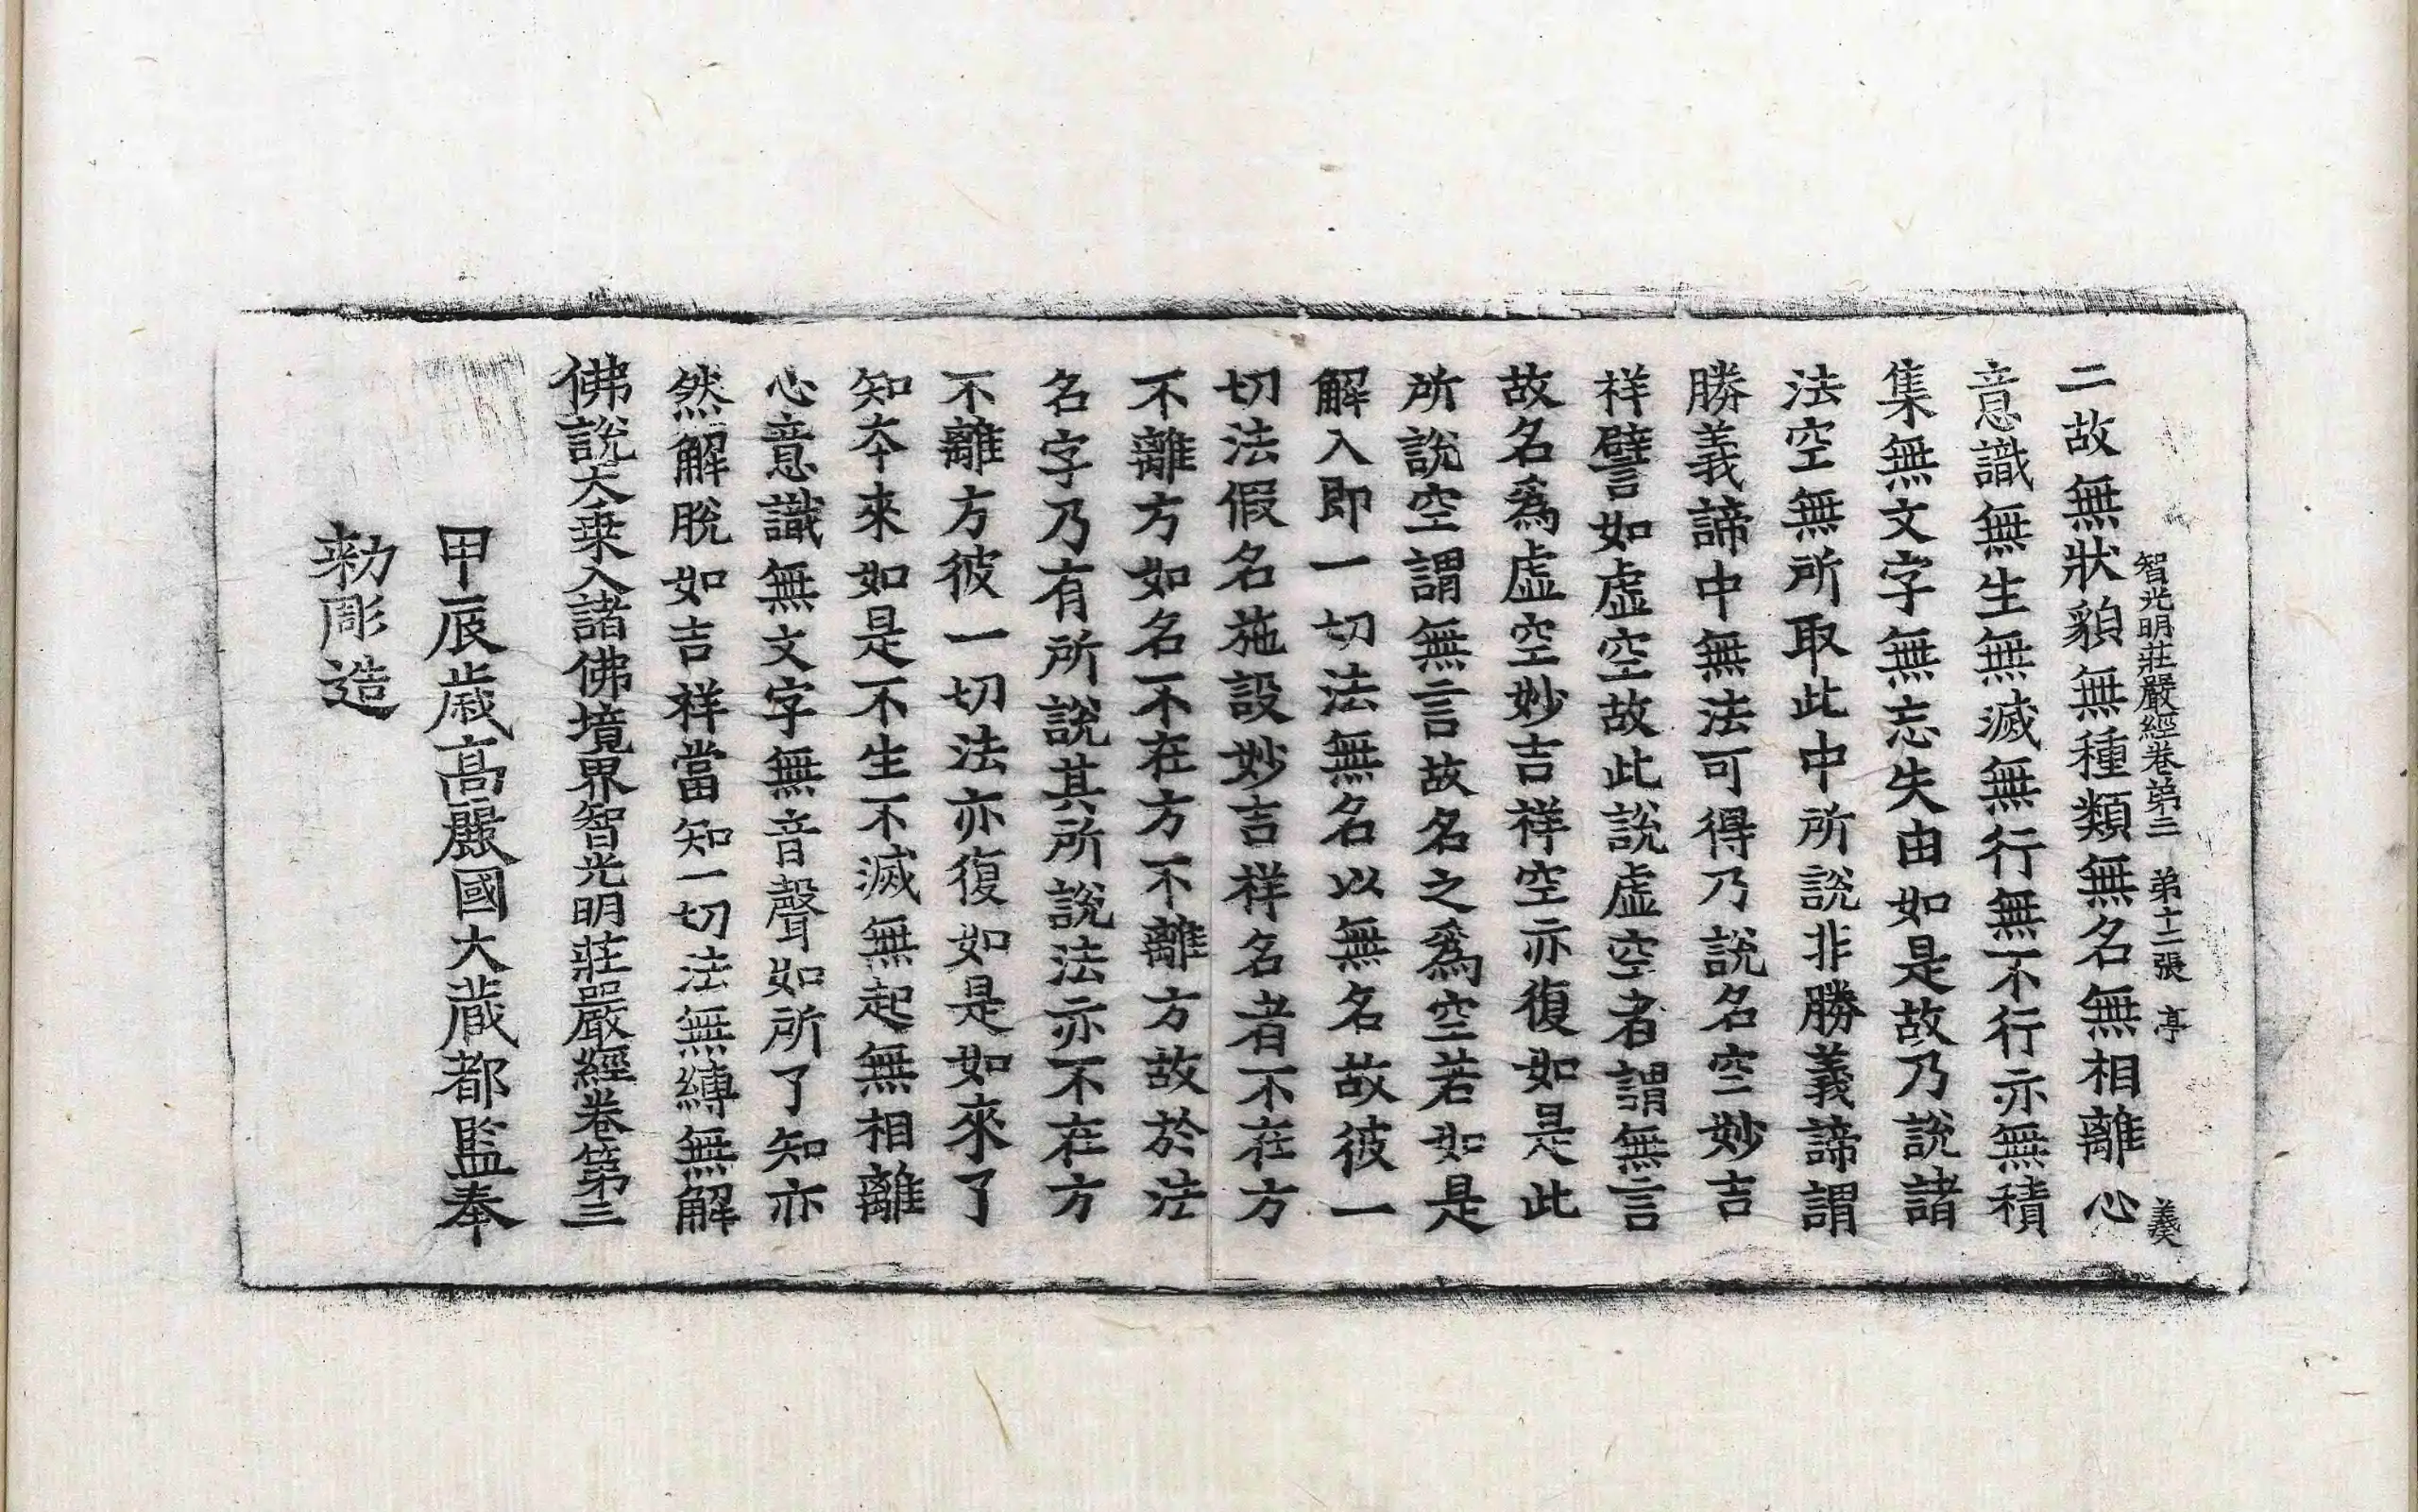 智光明莊嚴經卷第三 第十二張 亭
二故無狀貌無種類無名無相離心
意識無生無滅無行無不行亦無積
集無文字無忘失由如是故乃說諸
法空無所取此中所說非勝義諦謂
勝義諦中無法可得乃說名空妙吉
祥譬如虛空故此說虛空者謂無言
故名爲虛空妙吉祥空亦復如是此
所說空謂無言故名之爲空若如是
解入即一切法無名以無名故彼一
切法假名施設妙吉祥名者不在方
不離方如名不在方不離方故於法
名字乃有所說其所說法亦不在方
不離方彼一切法亦復如是如來了
知夲來如是不生不滅無起無相離
心意識無文字無音聲如所了知亦
然解脫如吉祥當知一切法無縛無解
佛說大乗入諸佛境界智光明莊嚴經卷第三
甲辰歲高麗國大藏都監奉
勑彫造